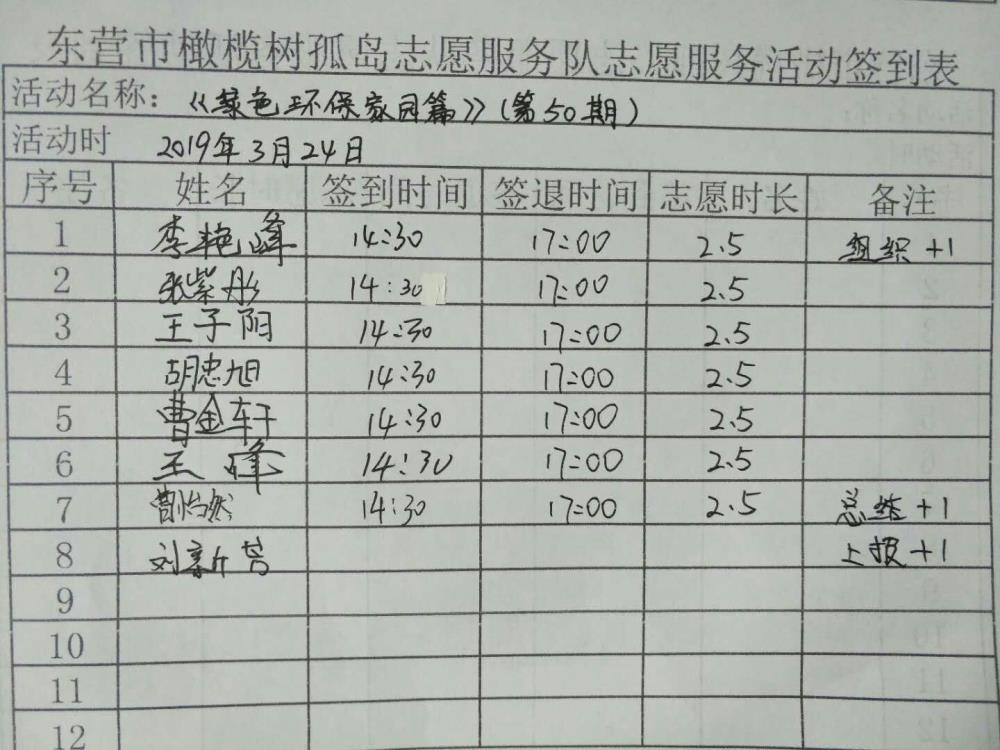 东营市橄榄树孤岛志愿服务队志愿服务活动签到表
活动名称：《绿色环保家园篇》(第50期)
活动时 2019年3月24日
序号 姓名 签到时间 签退时间 志愿时长 备注
1 李艳峰 14:30 17:00 2.5 组织+1
2 张紫彤 14:30 17:00 2.5
3 王子阳 14:30 17:00 2.5
4 胡忠旭 14:30 17:00 2.5
5 曹金轩 14:30 17:00 2.5
6 王峰 14:30 17:00 2.5
7 曹怡然 14:30 17:00 2.5 总结+1
8 刘 上报+1
9
10
11
12